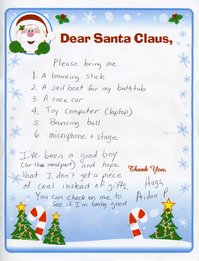 Dear Santa Claus,
Please bring me
1. A bouncing stick
2. A sail boat for my bathtub
3. A race car
4. Toy computer (laptop)
5. Bouncing ball
6 microphone & stage
I've been a good boy
(for the most part) and hope
that I don't get a piece
of coal instead of gifts.
You can check on me to
see if I'm being good
Thank You,
Hugs,
Aidan P.